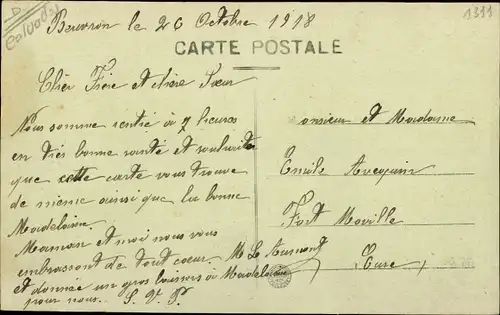 Calvados
Beuvron le 20 Octobre 1918
1311
CARTE POSTALE
Chèr Frère et chère Sœur
Nous somme rentré à 7 heures
en très bonne santé et souhaite
que cette carte vous trouve
de meme ainsi que la bonne
Madeleine.
Maman et moi nous vous
embrassont de tout cœur. M Le
et donnée un gros baisers à Madeleine
pour nous. S. V. P.
onsieur et Madame
Emile
Fort Moville
Eure